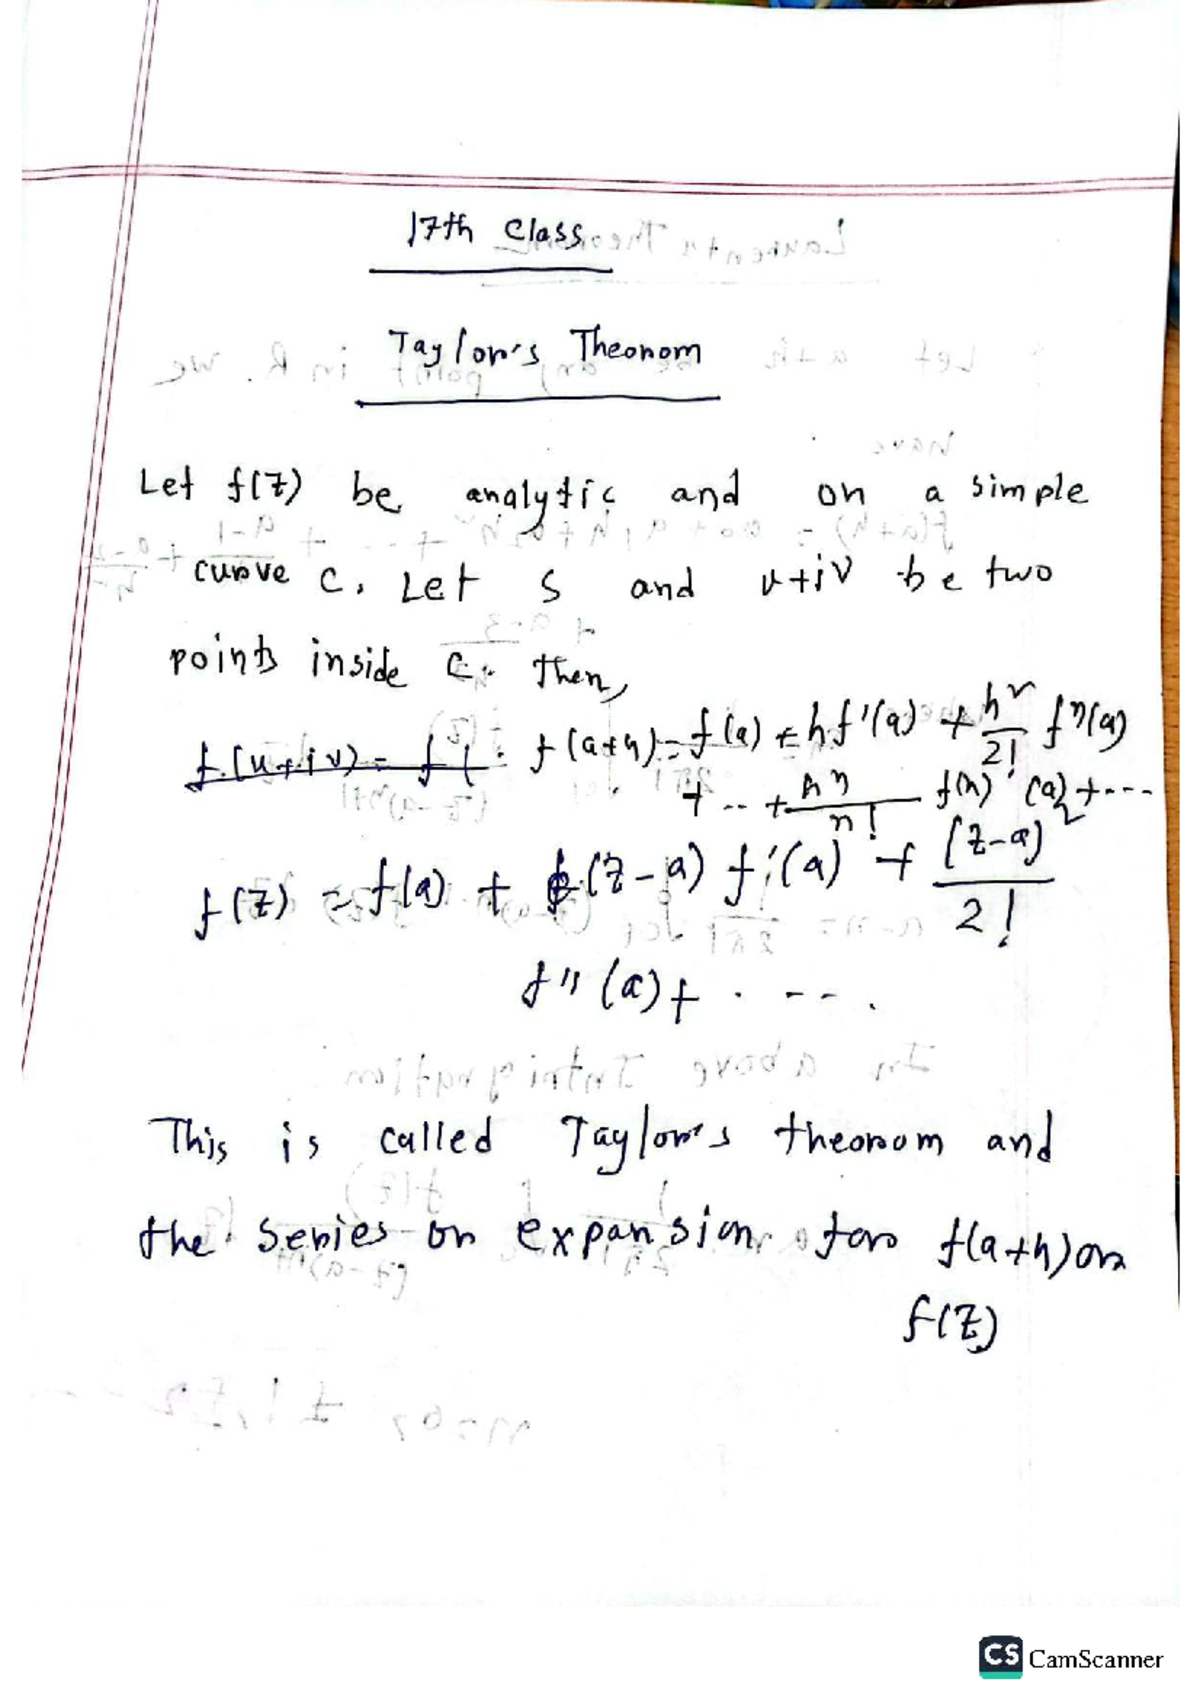 17th Class
Taylor's Theonom
Let f(z) be analytic and on a simple
curve C. Let S and u+iv be two
points inside C. Then,
f(u+iv) = f(
f(a+h) = f(a) + hf'(a) + h²/2! f''(a)
+ ... + hⁿ/n! f(n) (a) + ...
f(z) = f(a) + (z-a) f'(a) + (z-a)²/2!
f''(a) + . - - - .
This is called Taylor's theorom and
the series or expansion for f(a+h) or
f(z)
CS CamScanner